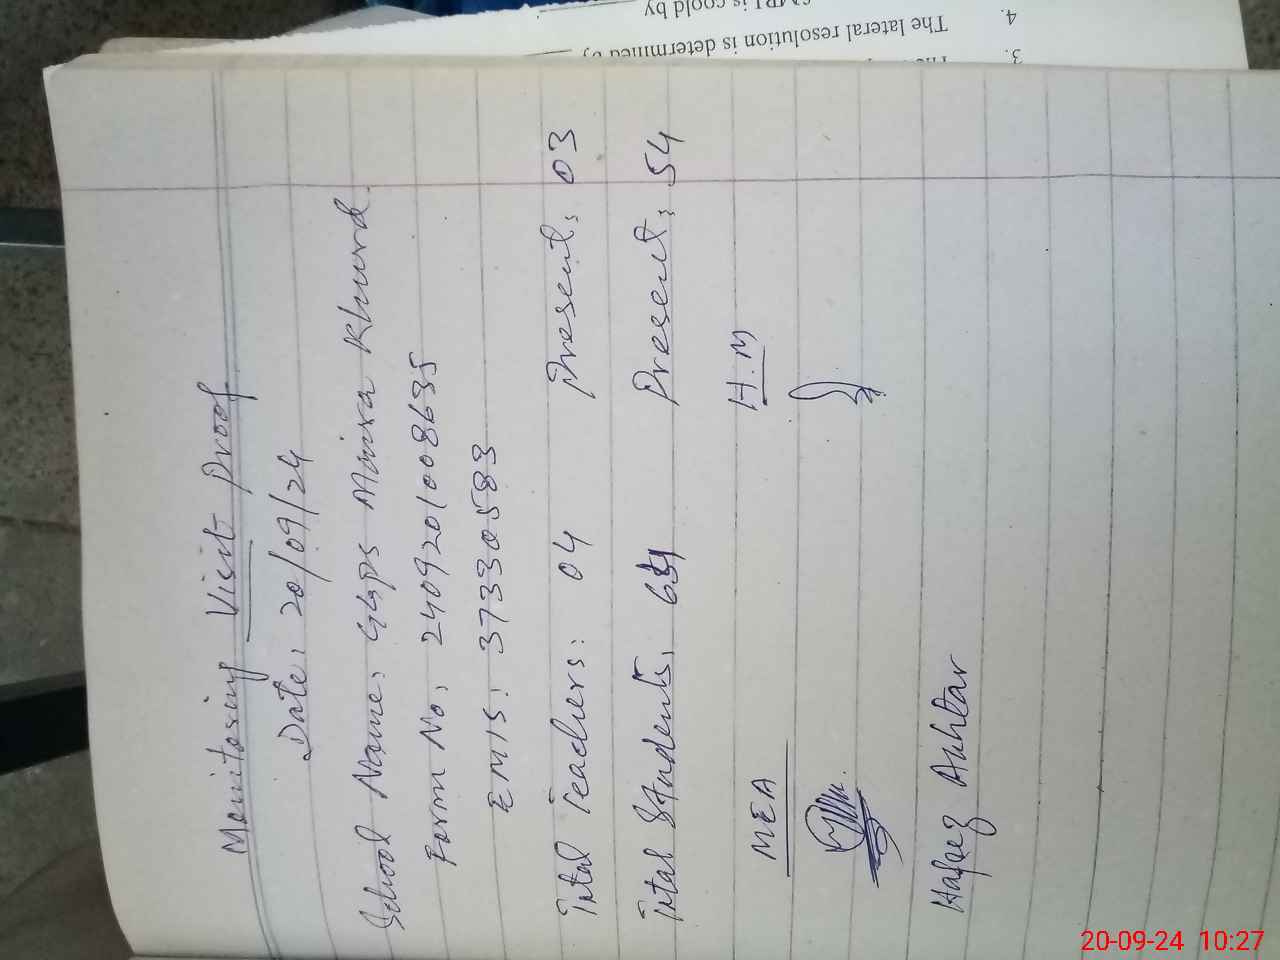 Monitoring Visit Proof
Date: 20/09/24
School Name: GGPS Mirza Khurd
Form No: 240920/008635
EMIS: 37330583
Total Teachers: 04 Present: 03
Total Students: Present: 54
MEA H.M
Hafeez Akhtar
3.
The lateral resolution is determined by
4.
MRI is coold by
20-09-24 10:27